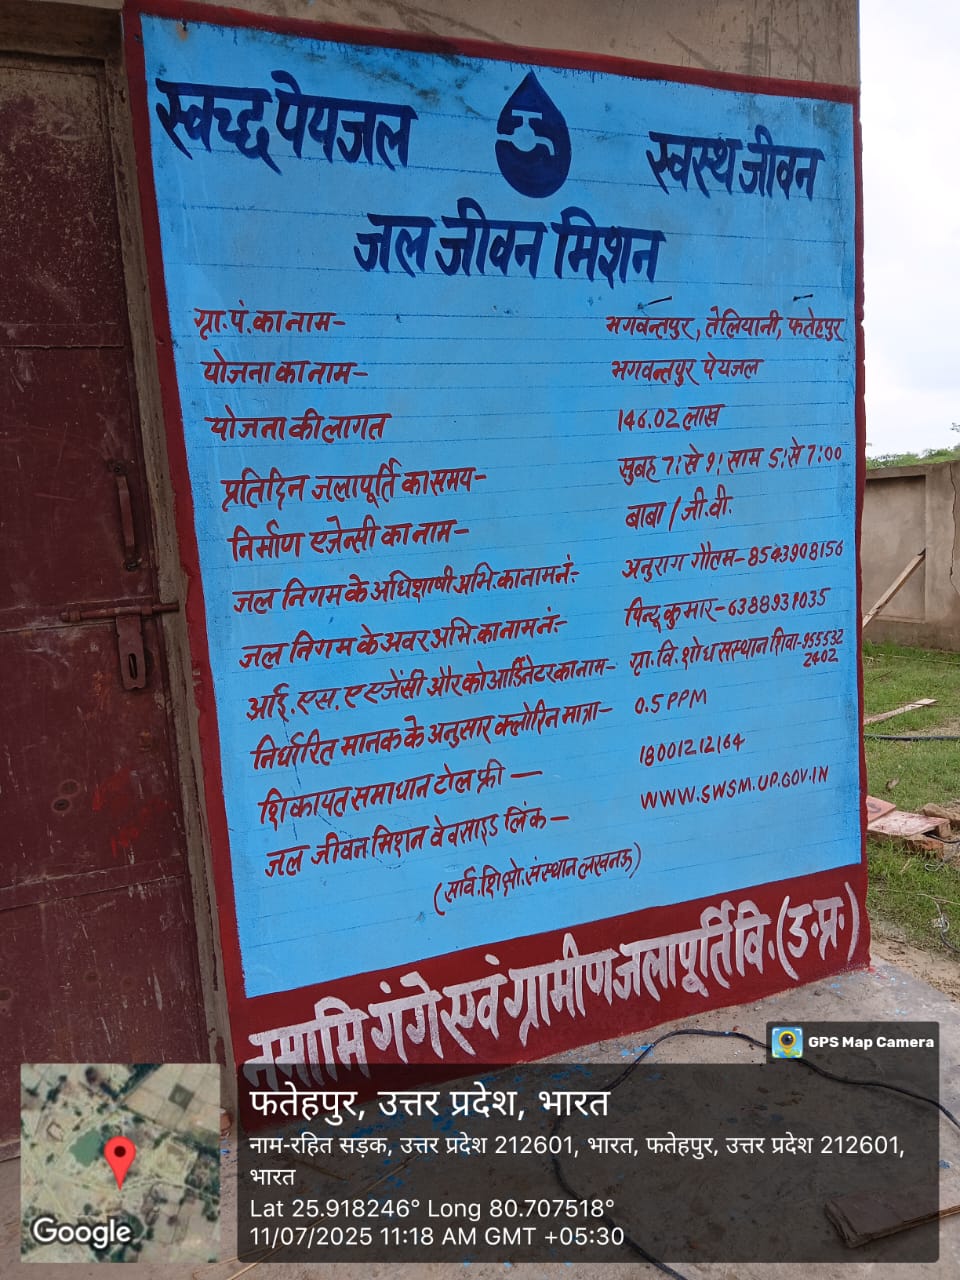 स्वच्छ पेयजल स्वस्थ जीवन
जल जीवन मिशन
ग्रा.पं. का नाम- भगवन्तपुर, तेलियानी, फतेहपुर
योजना का नाम- भगवन्तपुर पेयजल
योजना की लागत 146.02 लाख
प्रतिदिन जलापूर्ति का समय- सुबह 7: से 9: साम 5: से 7:00
निर्माण एजेन्सी का नाम- बाबा / जी.वी.
जल निगम के अधिशाषी अभि. का नाम नं:- अनुराग गौतम- 8543908156
जल निगम के अवर अभि. का नाम नं:- पिन्टू कुमार- 6388931035
आई. एस. ए एजेंसी और कोआर्डिनेटर का नाम- ग्रा. वि. शोध सस्थान शिवा- 955532
2402
निर्धारित मानक के अनुसार क्लोरिन मात्रा- 0.5 PPM
शिकायत समाधान टोल फ्री — 18001212164
जल जीवन मिशन वेबसाइड लिंक- WWW.SWSM.UP.GOV.IN
संस्थान लखनऊ)
नमामि गंगे एवं ग्रामीण जलापूर्ति वि. (उ.प्र.)
GPS Map Camera
फतेहपुर, उत्तर प्रदेश, भारत
नाम-रहित सड़क, उत्तर प्रदेश 212601, भारत, फतेहपुर, उत्तर प्रदेश 212601,
भारत
Lat 25.918246° Long 80.707518°
11/07/2025 11:18 AM GMT +05:30
Google